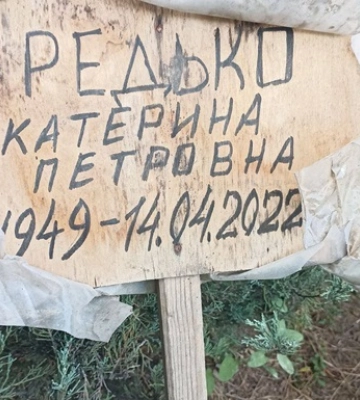 РЕДЬКО
КАТЕРИНА
ПЕТРОВНА
1949-14.04.2022